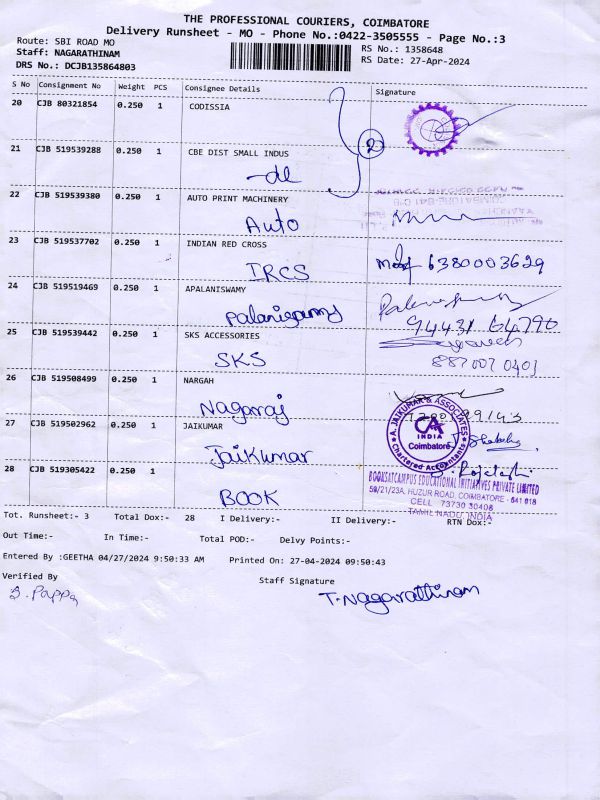 THE PROFESSIONAL COURIERS, COIMBATORE
Delivery Runsheet - MO - Phone No.:0422-3505555 - Page No.:3
Route: SBI ROAD MO
RS No.: 1358648
Staff: NAGARATHINAM
RS Date: 27-Apr-2024
DRS No.: DCJB135864803
S No Consignment No Weight PCS Consignee Details Signature
20 CJB 80321854 0.250 1 CODISSIA
2
21 CJB 519539288 0.250 1 CBE DIST SMALL INDUS
22 CJB 519539380 0.250 1 AUTO PRINT MACHINERY
Auto
23 CJB 519537702 0.250 1 INDIAN RED CROSS
IRCS 6380003629
24 CJB 519519469 0.250 1 APALANISWAMY
Palanisamy
94431 64790
25 CJB 519539442 0.250 1 SKS ACCESSORIES
SKS 887007 0401
26 CJB 519508499 0.250 1 NARGAH
Nagaraj
27 CJB 519502962 0.250 1 JAIKUMAR
Jaikumar
A. JAIKUMAR & ASSOCIATES
CA
INDIA
Coimbatore
Chartered Accountants
28 CJB 519305422 0.250 1 BOOK
BOOK
BOOKSATCAMPUS EDUCATIONAL INITIATIVES PRIVATE LIMITED
59/21/23A, HUZUR ROAD, COIMBATORE - 641 018
CELL 73730 30408
TAMIL NADU INDIA
Tot. Runsheet:- 3 Total Dox:- 28 I Delivery:- II Delivery:- RTN Dox:-
Out Time:- In Time:- Total POD:- Delvy Points:-
Entered By :GEETHA 04/27/2024 9:50:33 AM Printed On: 27-04-2024 09:50:43
Verified By Staff Signature
B. Pappa T. Nagarathinam